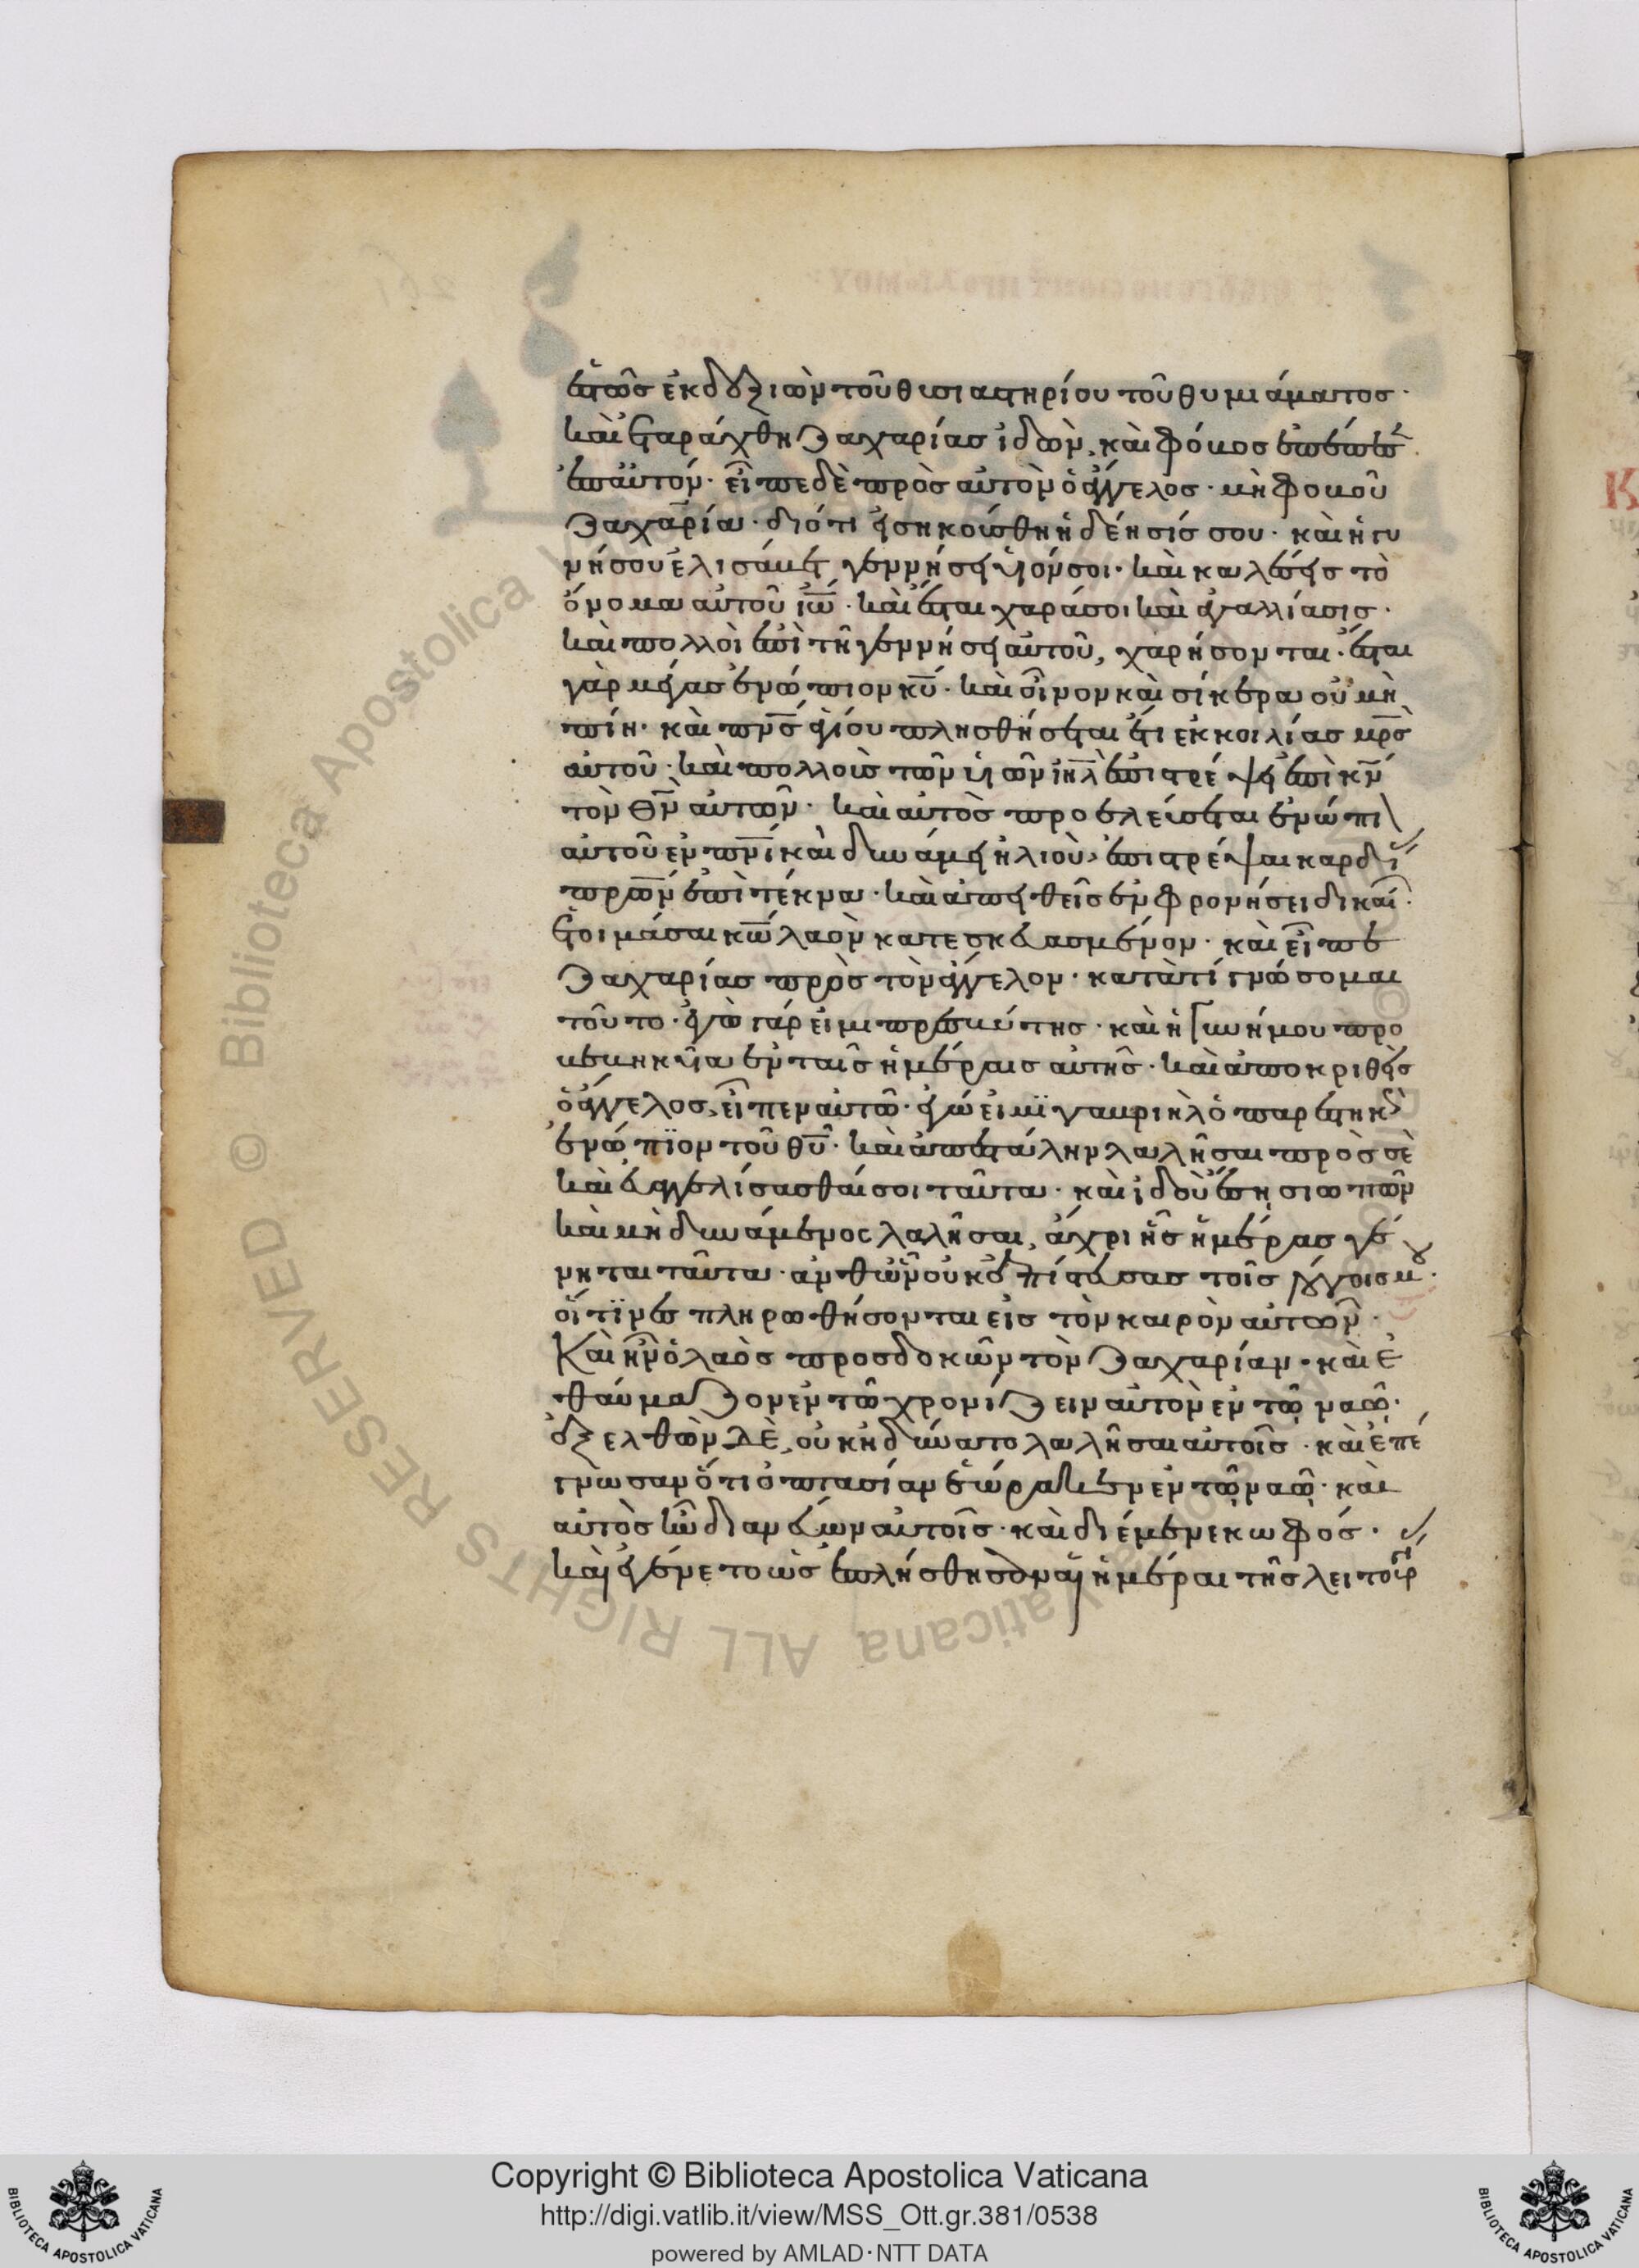 ἑστὼς ἐκ δεξιῶν τοῦ θυσιαστηρίου τοῦ θυμιάματος·
καὶ ἐταράχθη Ζαχαρίας ἰδὼν, καὶ φόβος ἐπέπεσεν
ἐπ' αὐτόν· εἶπε δὲ πρὸς αὐτὸν ὁ ἄγγελος· μὴ φοβοῦ
Ζαχαρία· διότι εἰσηκούσθη ἡ δέησίς σου· καὶ ἡ γυ
νή σου ἐλισάβετ γεννήσει υἱόν σοι· καὶ καλέσεις τὸ
ὄνομα αὐτοῦ ἰω̅· καὶ ἔσται χαρά σοι καὶ ἀγαλλίασις·
καὶ πολλοὶ ἐπὶ τῇ γεννήσει αὐτοῦ, χαρήσονται· ἔσται
γὰρ μέγας ἐνώπιον κυ̅· καὶ οἶνον καὶ σίκερα οὐ μὴ
πίη· καὶ πνς̅ ἁγίου πλησθήσεται ἔτι ἐκ κοιλίας μρς̅
αὐτοῦ· καὶ πολλοὺς τῶν υἱῶν ιηλ̅ ἐπιστρέψει ἐπὶ κν̅
τὸν θν̅ αὐτῶν· καὶ αὐτὸς προελεύσεται ἐνώπι
αὐτοῦ ἐν πνι̅ καὶ δυνάμει ἠλιοὺ, ἐπιστρέψαι καρδί
πρων̅ ἐπὶ τέκνα· καὶ ἀπειθεῖς ἐν φρονήσει δικαί·
ἑτοιμάσαι κω̅ λαὸν κατεσκευασμένον· καὶ εἶπε
Ζαχαρίας πρὸς τὸν ἄγγελον· κατὰ τί γνώσομαι
τοῦτο· ἐγὼ γάρ εἰμι πρεσβύτης· καὶ ἡ γυνή μου προ
βεβηκυῖα ἐν ταῖς ἡμέραις αὐτῆς· καὶ ἀποκριθεὶς
ὁ ἄγγελος, εἶπεν αὐτῶ· ἐγώ εἰμϊ γαβριὴλ ὁ παρεστηκὼς
ἐνώπϊον τοῦ θυ̅· καὶ ἀπεστάλην λαλῆσαι πρὸς σὲ
καὶ εὐαγγελίσασθαί σοι ταῦτα· καὶ ἰδοὺ ἔση σιωπῶν
καὶ μὴ δυνάμενος λαλῆσαι, ἄχρι ἧς ἡμέρας γέ
νηται ταῦτα· ἀνθ' ὧν οὐκ ἐπίστευσας τοῖς λόγοις μου·
οἵτϊνες πληρωθήσονται εἰς τὸν καιρὸν αὐτῶν·
Καὶ ἦν ὁ λαὸς προσδοκῶν τὸν Ζαχαρίαν· καὶ ἐ
θαύμαζον ἐν τῶ χρονίζειν αὐτὸν ἐν τῷ ναῷ·
ἐξελθὼν δὲ, οὐκ ἠδύνατο λαλῆσαι αὐτοῖς· καὶ ἐπέ
γνωσαν ὅτι ὀπτασίαν ἑώρακεν ἐν τῷ ναῷ· καὶ
αὐτὸς ἦν διανεύων αὐτοῖς· καὶ διέμενε κωφός·
καὶ ἐγένετο ὡς ἐπλήσθησαν αἱ ἡμέραι τῆς λειτουρ
Copyright © Biblioteca Apostolica Vaticana
http://digi.vatlib.it/view/MSS_Ott.gr.381/0538
powered by AMLAD·NTT DATA